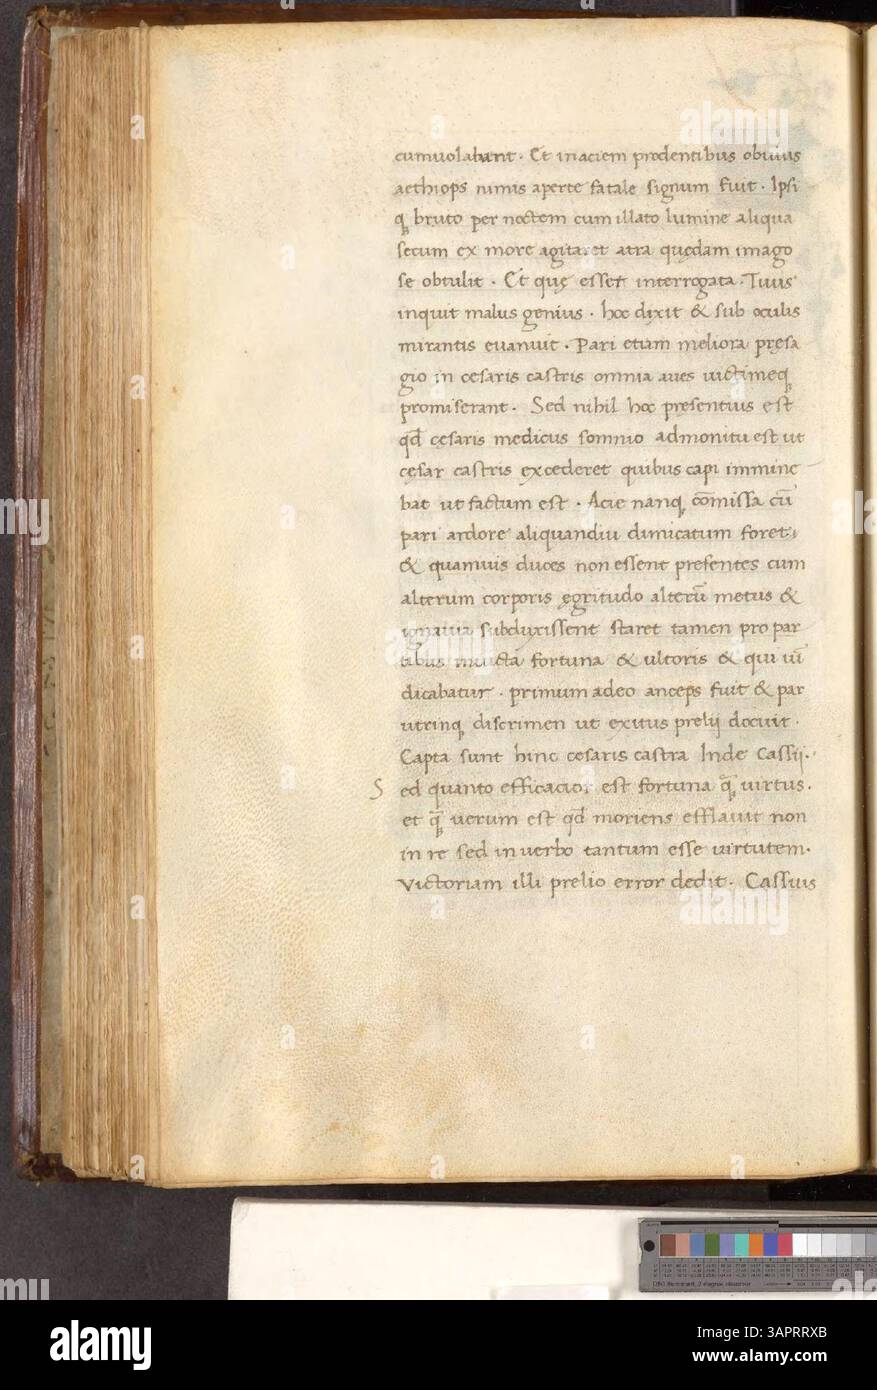 cumuolabunt . Et in aciem prodentibus obuius
aethiops nimis aperte fatale signum fuit . Ipsi
q; bruto per noctem cum illato lumine aliqua
secum ex more agitaret atra quędam imago
se obtulit . Et quę esset interrogata . Tuus
inquit malus genius . hoc dixit & sub oculis
mirantis euanuit . Pari etiam meliora pręsa
gio in cesaris castris omnia aues uictimeq;
promiserant . Sed nihil hoc pręsentius est
qd̄ cęsaris medicus somnio admonitu est ut
cęsar castris excederet quibus capi immine
bat ut factum est . Acie nanq; cōmissa cū
pari ardore aliquandiu dimicatum foret .
& quamuis duces non essent presentes cum
alterum corporis ęgritudo alterū metus &
ignauia subduxissent staret tamen pro par
tibus inuicta fortuna & ultoris & qui uī
dicabatur . primum adeo anceps fuit & par
utrinq; discrimen ut exitus prelij docuit .
Capta sunt hinc cesaris castra Inde Cassij .
S ed quanto efficacior est fortuna q̄ uirtus .
et q̄ uerum est qd̄ moriens efflauit non
in re sed in uerbo tantum esse uirtutem .
Victoriam illi prelio error dedit . Cassius
alamy
Image ID: 3APRRXB
www.alamy.com